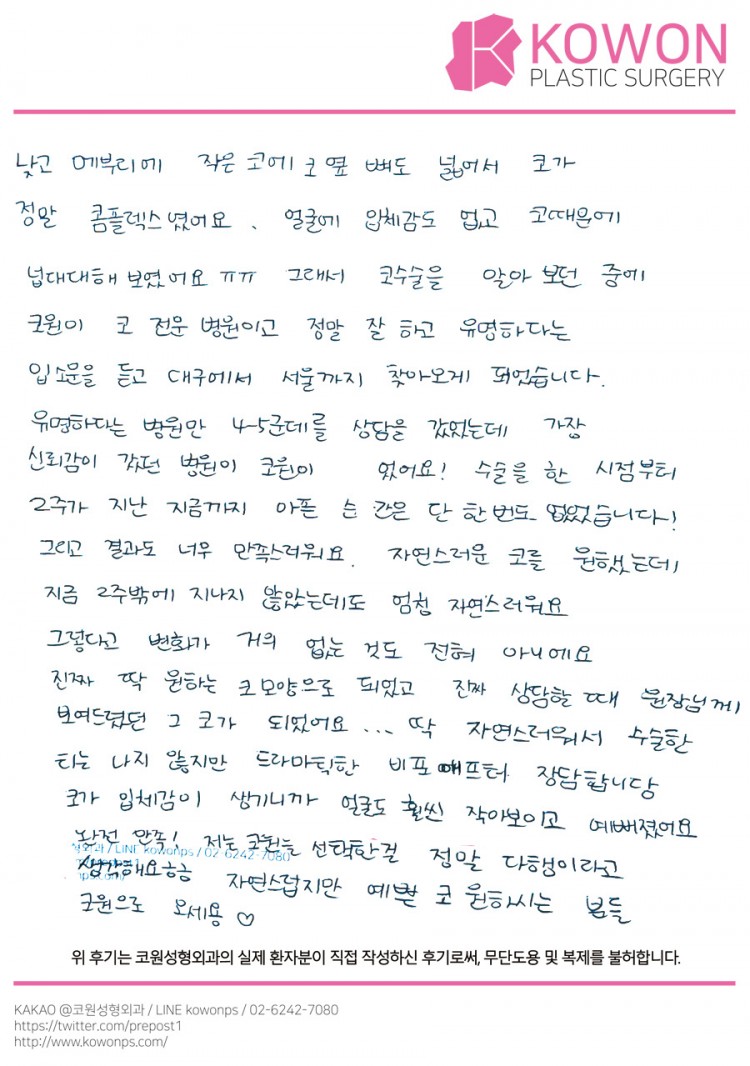 KOWON
PLASTIC SURGERY
낮고 메부리에 작은 코에 코 옆 뼈도 넓어서 코가
정말 콤플렉스였어요. 얼굴에 입체감도 없고 코때문에
넙대대해 보였어요 ㅠㅠ 그래서 코수술을 알아 보던 중에
코원이 코 전문 병원이고 정말 잘 하고 유명하다는
입소문을 듣고 대구에서 서울까지 찾아오게 되었습니다.
유명하다는 병원만 4-5군데를 상담을 갔었는데 가장
신뢰감이 갔던 병원이 코원이 었어요! 수술을 한 시점부터
2주가 지난 지금까지 아픈 순간은 단 한번도 없었습니다!
그리고 결과도 너무 만족스러워요. 자연스러운 코를 원했는데
지금 2주밖에 지나지 않았는데도 엄청 자연스러워요
그렇다고 변화가 거의 없는 것도 전혀 아니에요
진짜 딱 원하는 코모양으로 되었고 진짜 상담할 때 원장님께
보여드렸던 그 코가 되었어요... 딱 자연스러워서 수술한
티는 나지 않지만 드라마틱한 비포애프터 장담합니당
코가 입체감이 생기니까 얼굴도 훨씬 작아보이고 예뻐졌어요
완전 만족! 저는 코원을 선택한걸 정말 다행이라고
생각해요ㅎㅎ 자연스럽지만 예쁜 코 원하시는 분들
코원으로 오세용 ♡
위 후기는 코원성형외과의 실제 환자분이 직접 작성하신 후기로써, 무단도용 및 복제를 불허합니다.
KAKAO @코원성형외과 / LINE kowonps / 02-6242-7080
https://twitter.com/prepost1
http://www.kowonps.com/